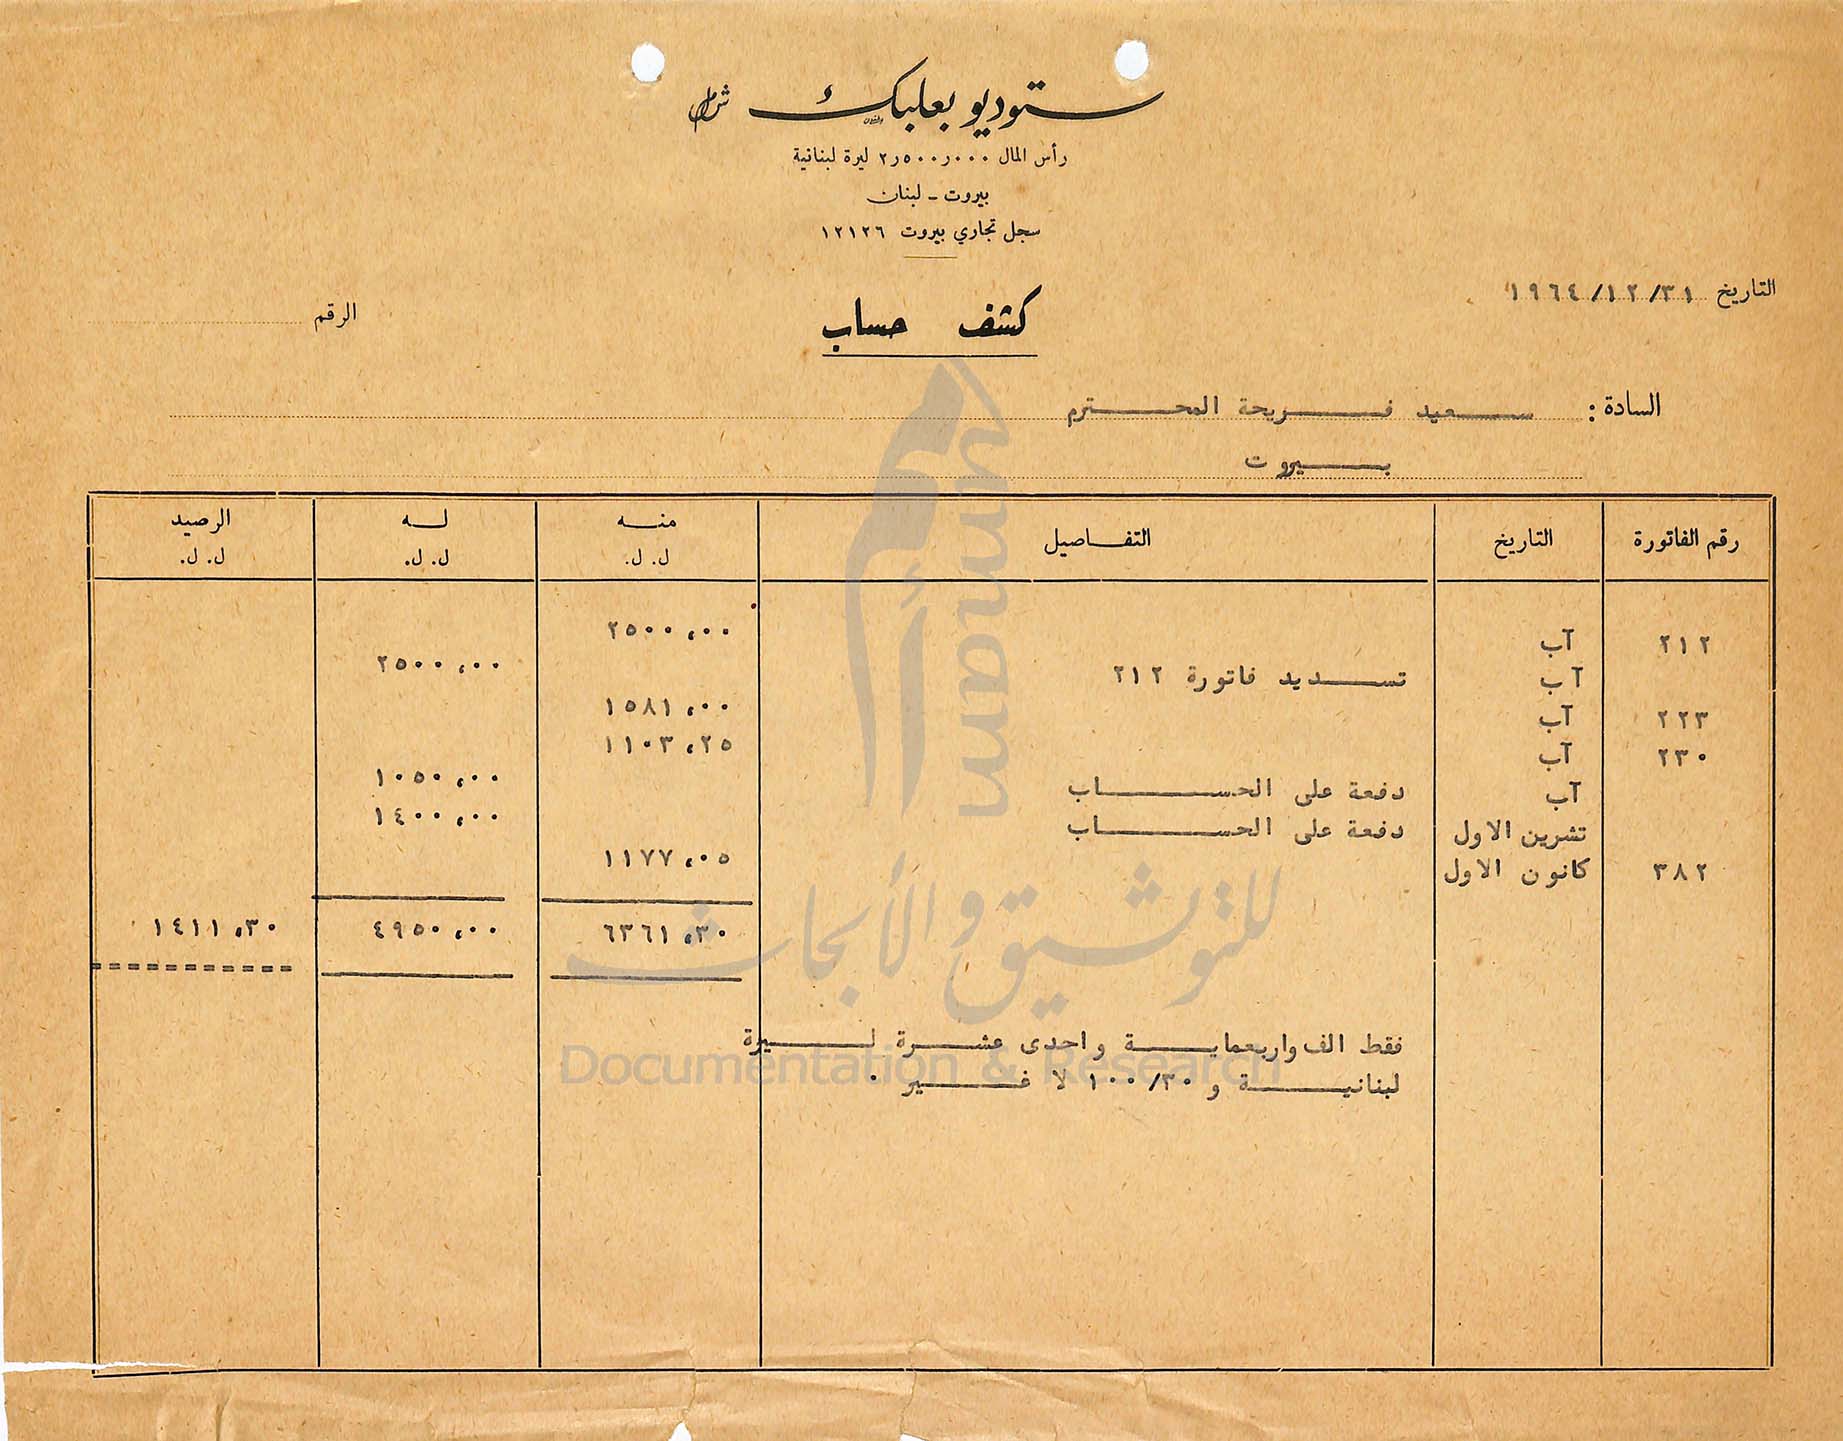 ستوديو بعلبك ش م ل
رأس المال ٢٫٥٠٠٫٠٠٠ ليرة لبنانية
بيروت - لبنان
سجل تجاري بيروت ١٢١٢٦
التاريخ ١٩٦٤/١٢/٣١
كشف حساب
الرقم
السادة : سعيد فريحة المحترم
بيروت
رقم الفاتورة التاريخ التفاصيل منه ل.ل. له ل.ل. الرصيد ل.ل.
٢١٢ آب ٢٥٠٠،٠٠
آب تسديد فاتورة ٢١٢ ٢٥٠٠،٠٠
٢٢٣ آب ١٥٨١،٠٠
٢٣٠ آب ١١٠٣،٢٥
آب دفعة على الحساب ١٠٥٠،٠٠
تشرين الاول دفعة على الحساب ١٤٠٠،٠٠
٣٨٢ كانون الاول ١١٧٧،٠٥
٦٣٦١،٣٠ ٤٩٥٠،٠٠ ١٤١١،٣٠
فقط الف واربعماية واحدى عشرة ليرة
لبنانية و ١٠٠/٣٠ لا غير ٠
umam
للتوثيق والأبحاث
Documentation & Research